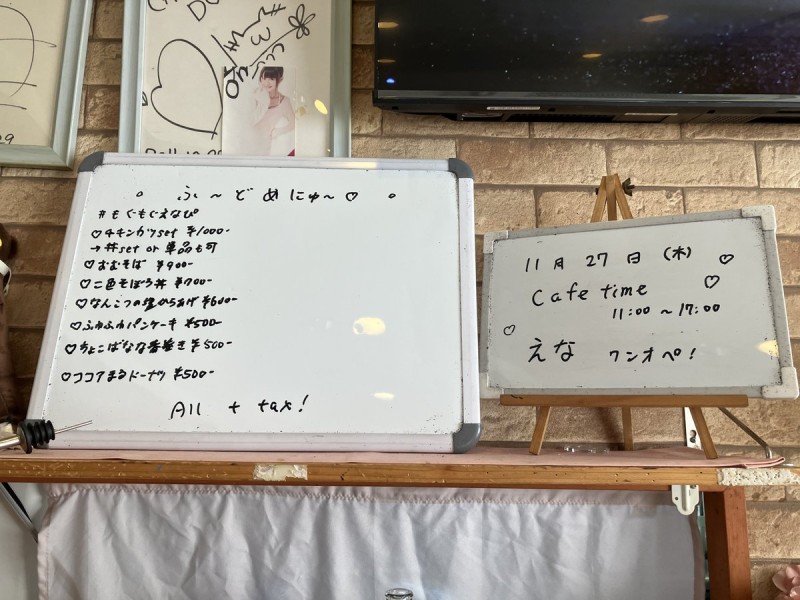 。ふ〜どめにゅ〜♡。
#もぐもぐえなぴ
♡チキンカツset ¥1000-
→丼set or 単品も可
♡おむそば ¥900-
♡二色そぼろ丼 ¥700-
♡なんこつの塩からあげ ¥600-
♡ふわふわパンケーキ ¥500-
♡ちょこばなな春巻き ¥500-
♡ココアまるドーナツ ¥500-
All + tax!
11月27日(木)♡
Cafe time ♡
11:00 〜 17:00
♡えな ワンオペ!